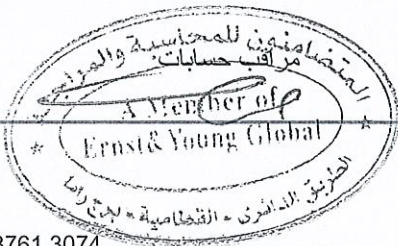 المتضامنون للمحاسبة والمراجعة
مراقب حسابات
A Member of
Ernst & Young Global
الطريق الدائرى - القطامية - برج راما
3761 3074